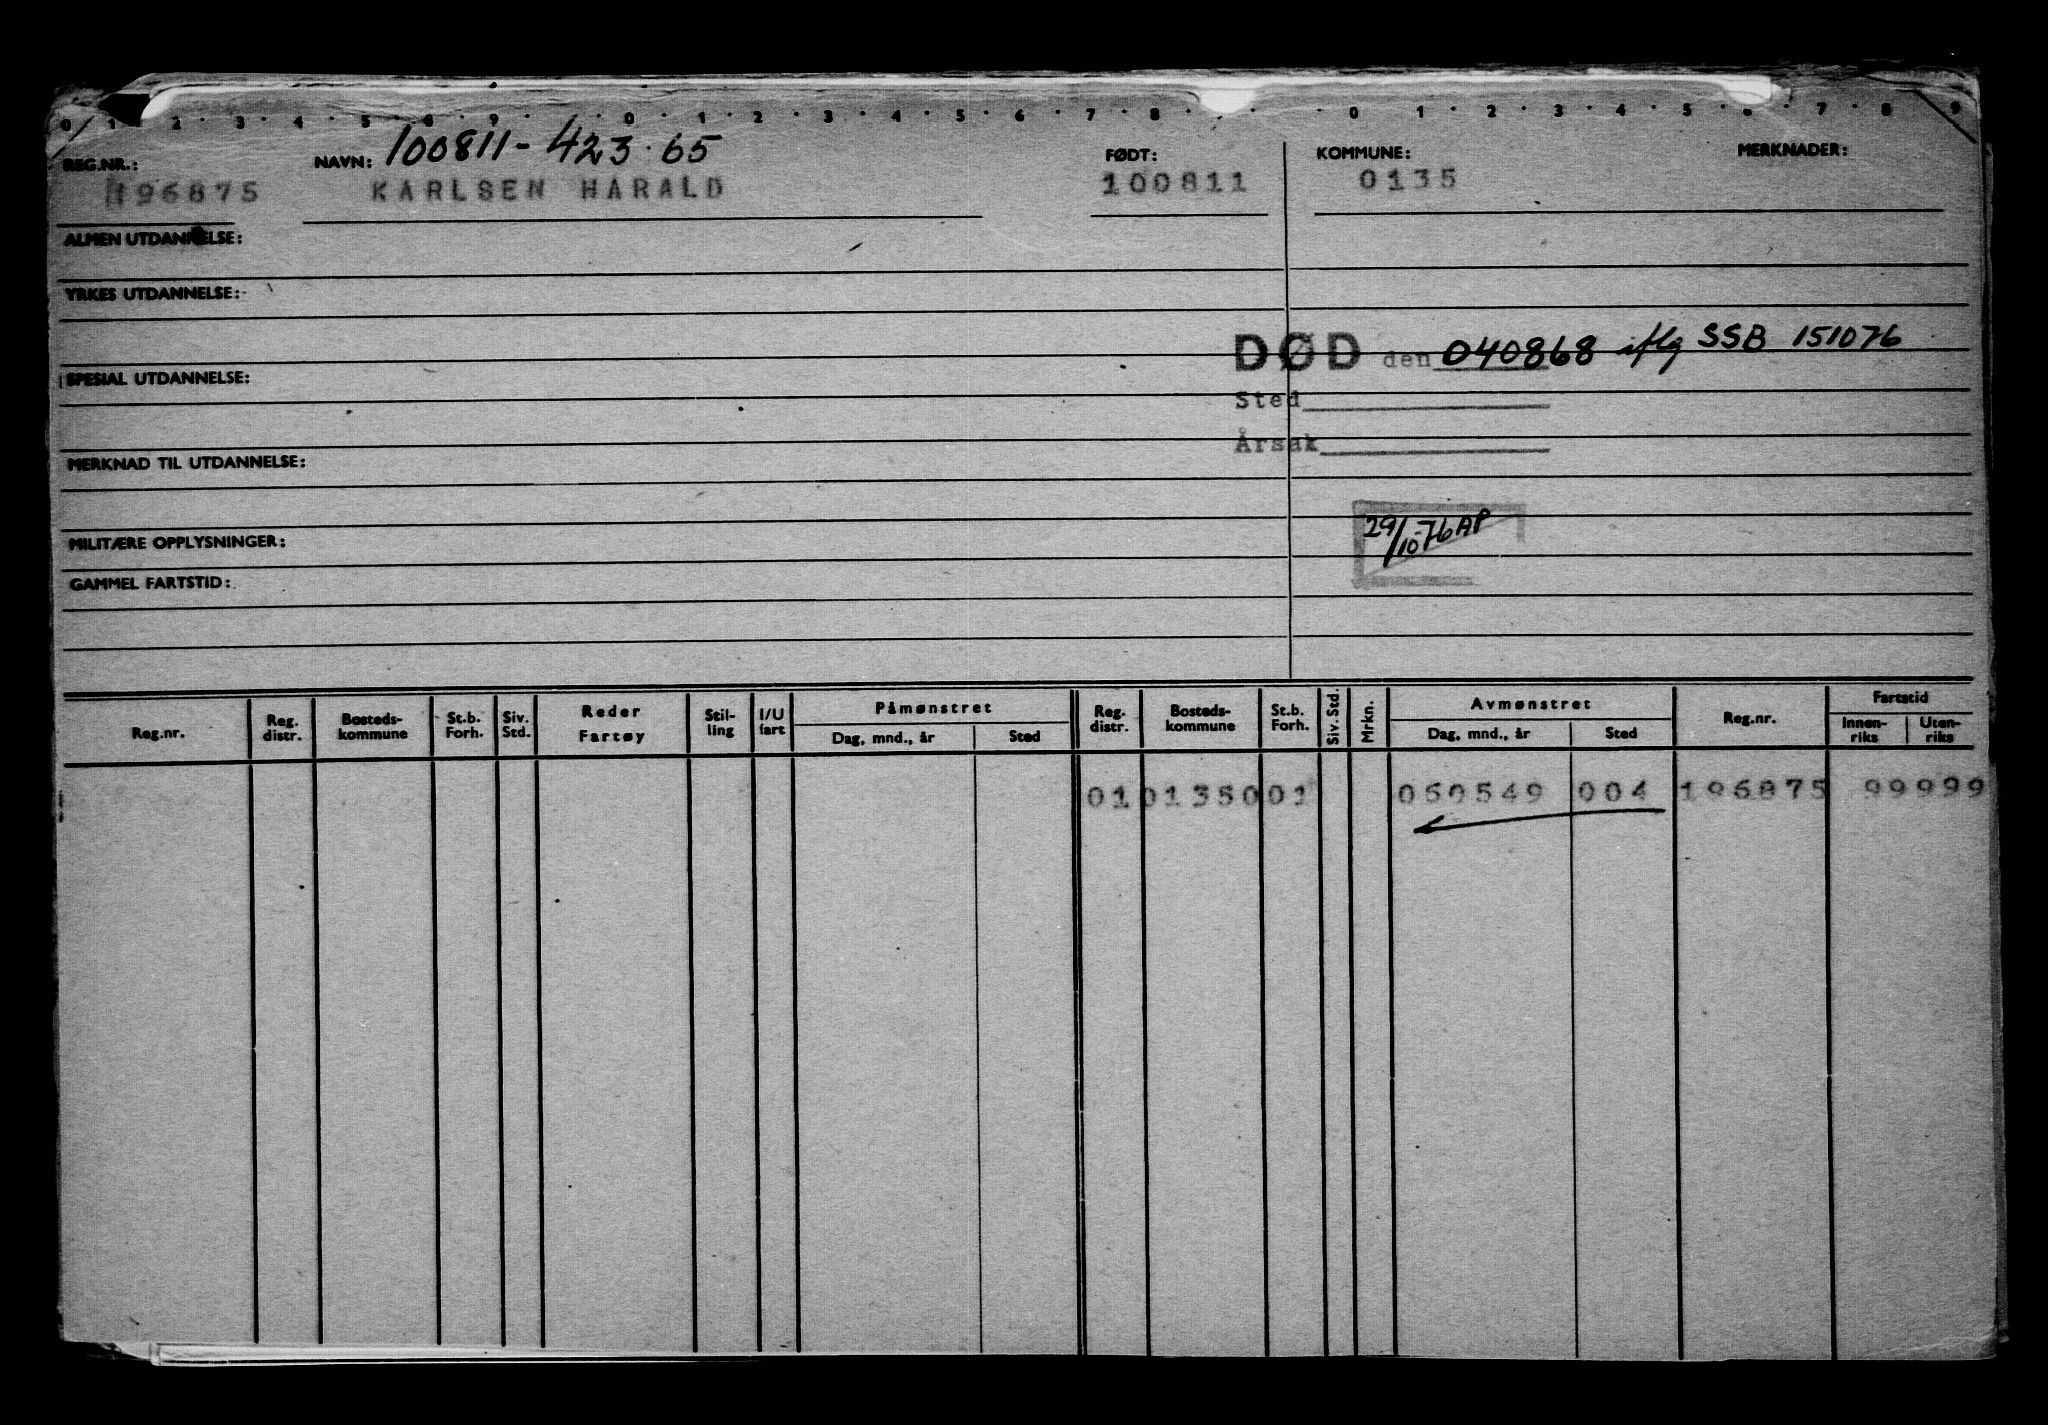 0 1 2 3 4 5 6 7 0 1 2 3 4 5 6 7 8 0 1 2 3 4 5 6 7 8 9
REG.NR.: NAVN: 100811-423.65 FØDT: KOMMUNE: MERKNADER:
196875 KARLSEN HARALD 100811 0135
ALMEN UTDANNELSE:
YRKES UTDANNELSE:
DØD den 040868 iflg SSB 151076
SPESIAL UTDANNELSE:
Sted
Årsak
MERKNAD TIL UTDANNELSE:
29/10-76 AP
MILITÆRE OPPLYSNINGER:
GAMMEL FARTSTID:
Reg.nr. Reg. distr. Bosteds-kommune St.b. Forh. Siv. Std. Reder Fartøy Stil-ling I/U fart Påmønstret Dag, mnd., år Sted Reg. distr. Bosteds-kommune St.b. Forh. Siv. Std. Mrkn. Avmønstret Dag, mnd., år Sted Reg.nr. Fartstid Innen-riks Uten-riks
01 0135001 060549 004 196875 99999